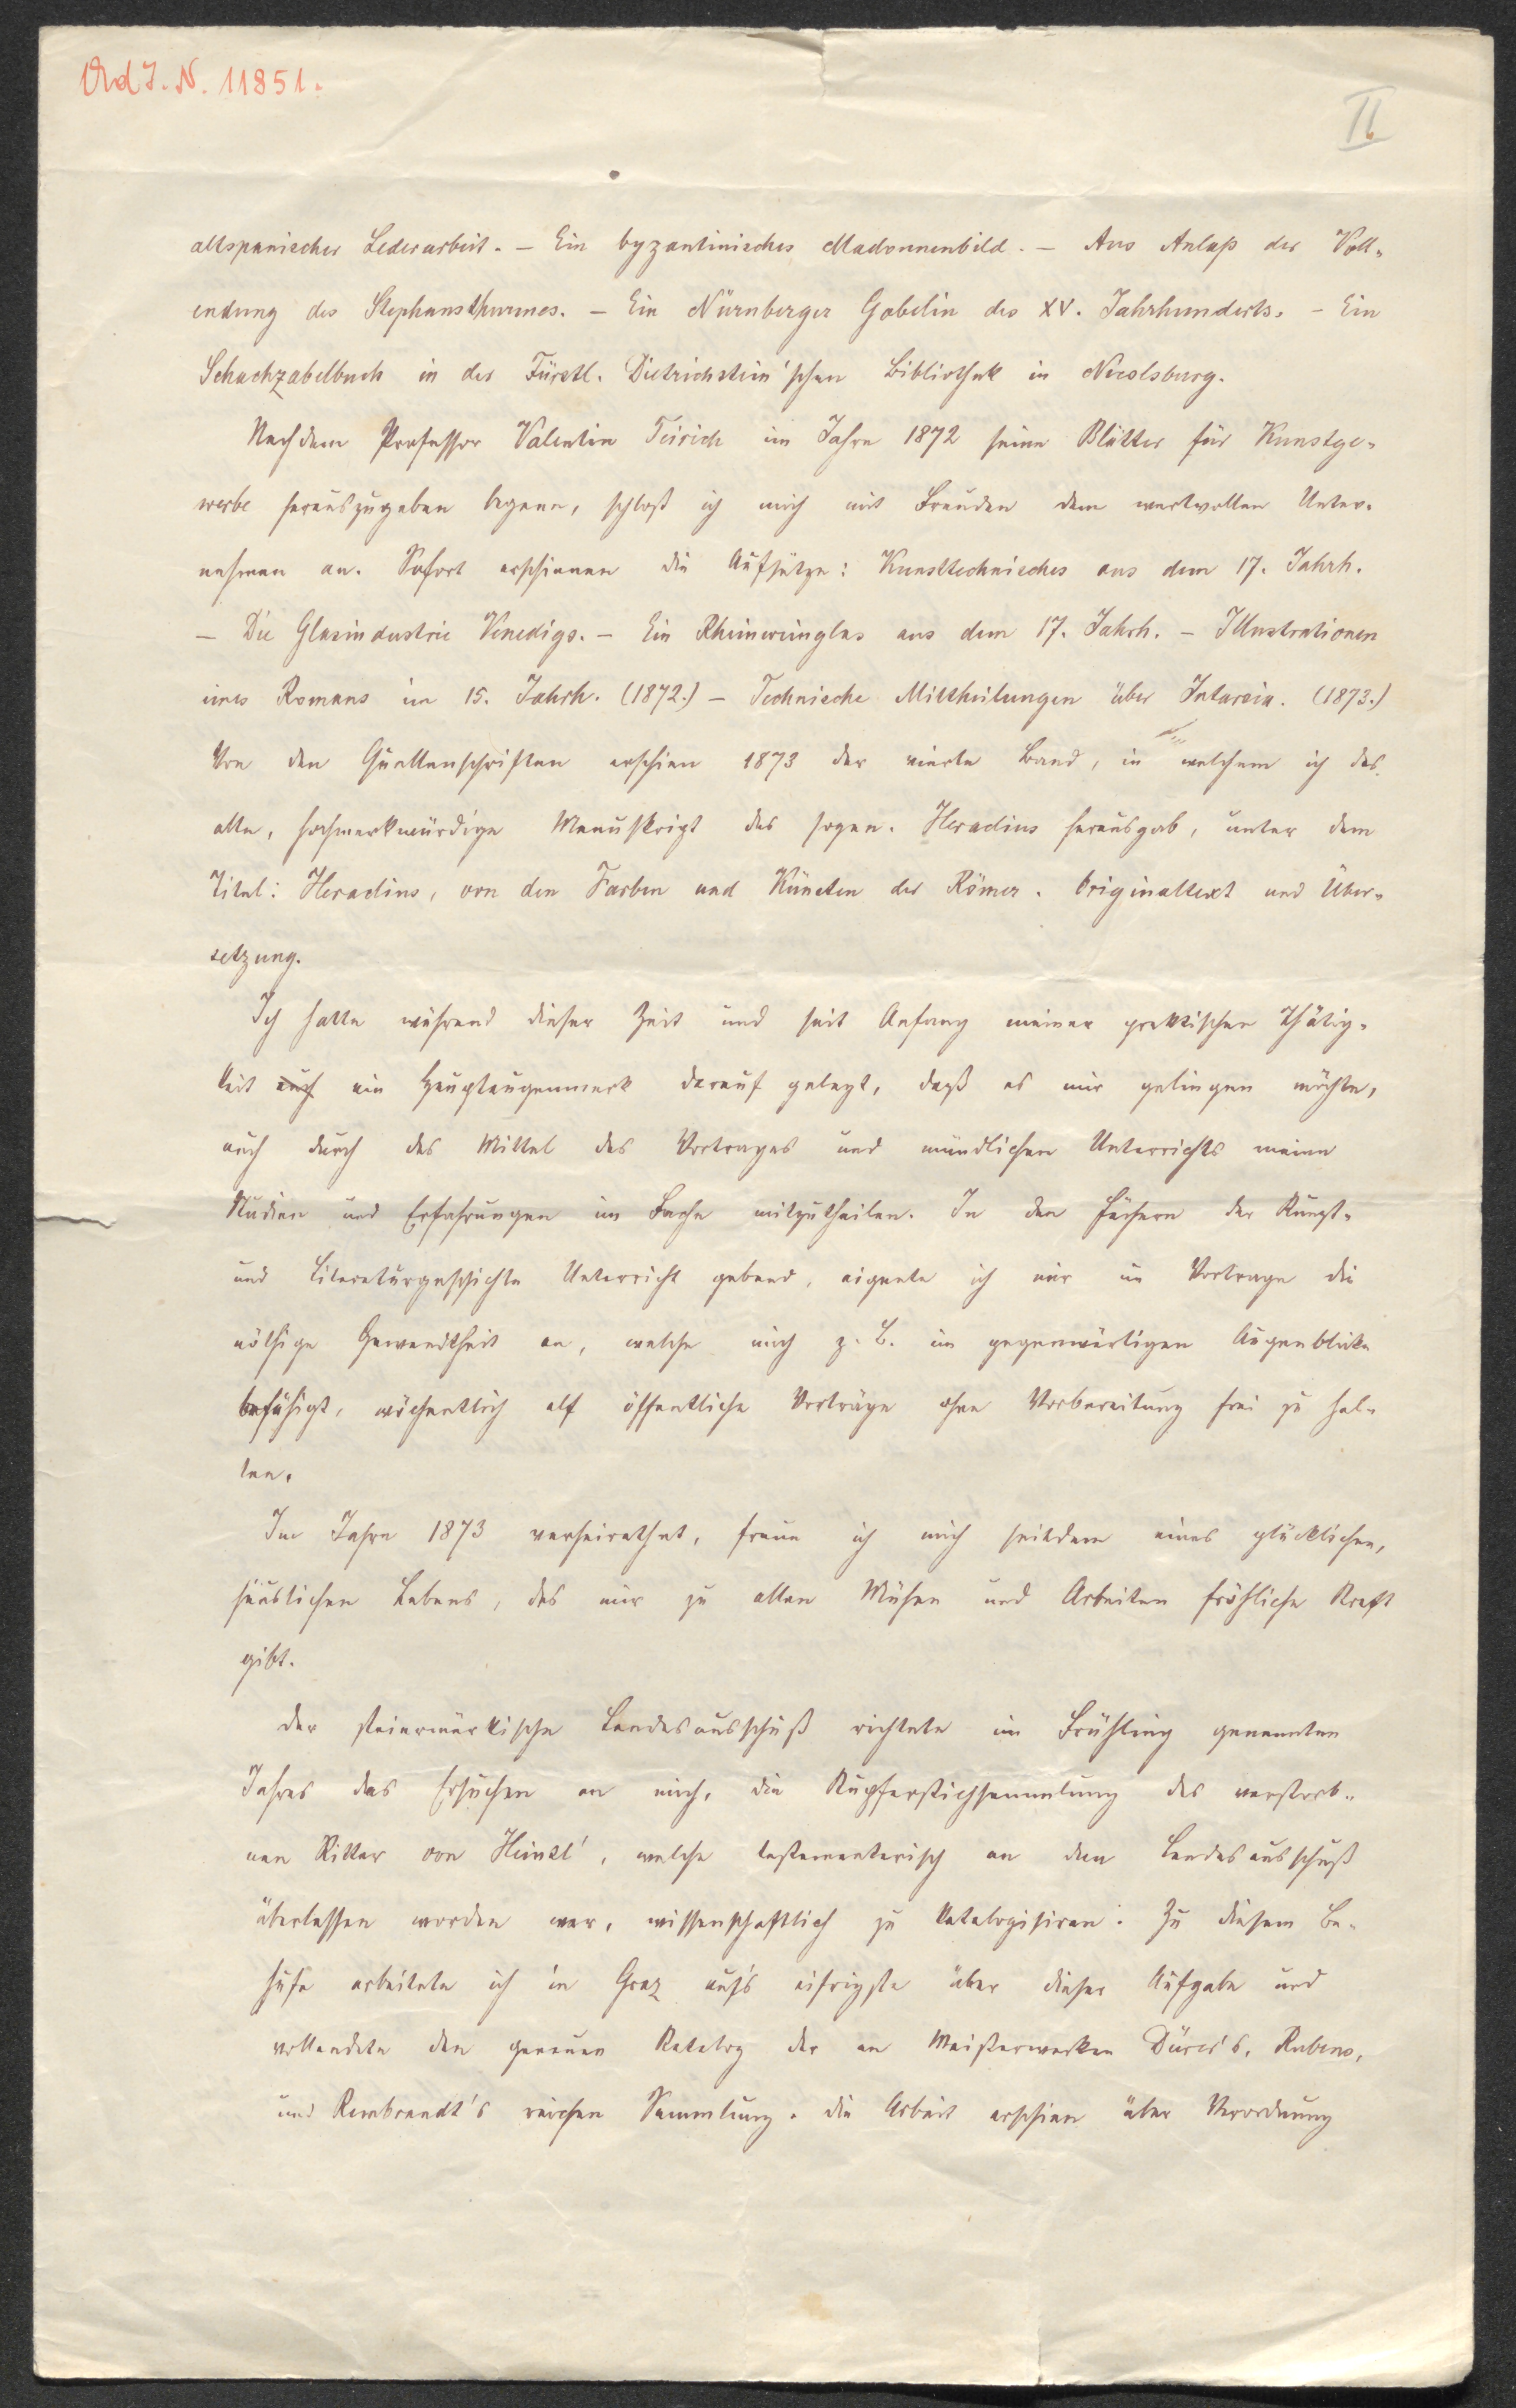 Ad J. N. 11851.
II
altspanischer Lederarbeit. – Ein byzantinisches Madonnenbild. – Aus Anlaß der Voll-
endung des Stephansthurmes. – Ein Nürnberger Gobelin des XV. Jahrhunderts. – Ein
Schachzabelbuch in der Fürstl. Dietrichstein'schen Bibliothek in Nicolsburg.
Nachdem Professor Valentin Teirich im Jahre 1872 seine Blätter für Kunstge-
werbe herauszugeben begann, schloß ich mich mit Freuden dem wertvollen Unter-
nehmen an. Sofort erschienen die Aufsätze: Kunsttechnisches aus dem 17. Jahrh.
– Die Glasindustrie Venedigs. – Ein Rheinweinglas aus dem 17. Jahrh. – Illustrationen
eines Romans im 15. Jahrh. (1872.) – Technische Mittheilungen über Intarsia. (1873.)
Von den Quellenschriften erschien 1873 der vierte Band, in welchem ich das
alte, hochmerkwürdige Manuskript des sogen. Heraclius herausgab, unter dem
Titel: Heraclius, von den Farben und Künsten der Römer. Originaltext und Über-
setzung.
Ich hatte während dieser Zeit und seit Anfang meiner praktischen Thätig-
keit auch ein Hauptaugenmerk darauf gelegt, daß es mir gelingen möchte,
auch durch das Mittel des Vortrages und mündlichen Unterrichts meine
Studien und Erfahrungen im Fache mitzutheilen. In den Fächern der Kunst-
und Literaturgeschichte Unterricht gebend, eignete ich mir im Vortrage die
nöthige Gewandtheit an, welche mich z. B. im gegenwärtigen Augenblicke
befähigt, wöchentlich elf öffentliche Vorträge ohne Vorbereitung frei zu hal-
ten.
Im Jahre 1873 verheirathet, freue ich mich seitdem eines glücklichen,
häuslichen Lebens, das mir zu allen Mühen und Arbeiten fröhliche Kraft
gibt.
Der steiermärkische Landesausschuß richtete im Frühling genannten
Jahres das Ersuchen an mich, die Kupferstichsammlung des verstorb-
nen Ritter von Heintl', welche testamentarisch an den Landesausschuß
überlassen worden war, wissenschaftlich zu katalogisiren. Zu diesem Be-
hufe arbeitete ich in Graz aufs eifrigste über dieser Aufgabe und
vollendete den genauen Katalog der an Meisterwerken Dürer's, Rubens,
und Rembrandt's reichen Sammlung. Die Arbeit erschien über Verordnung